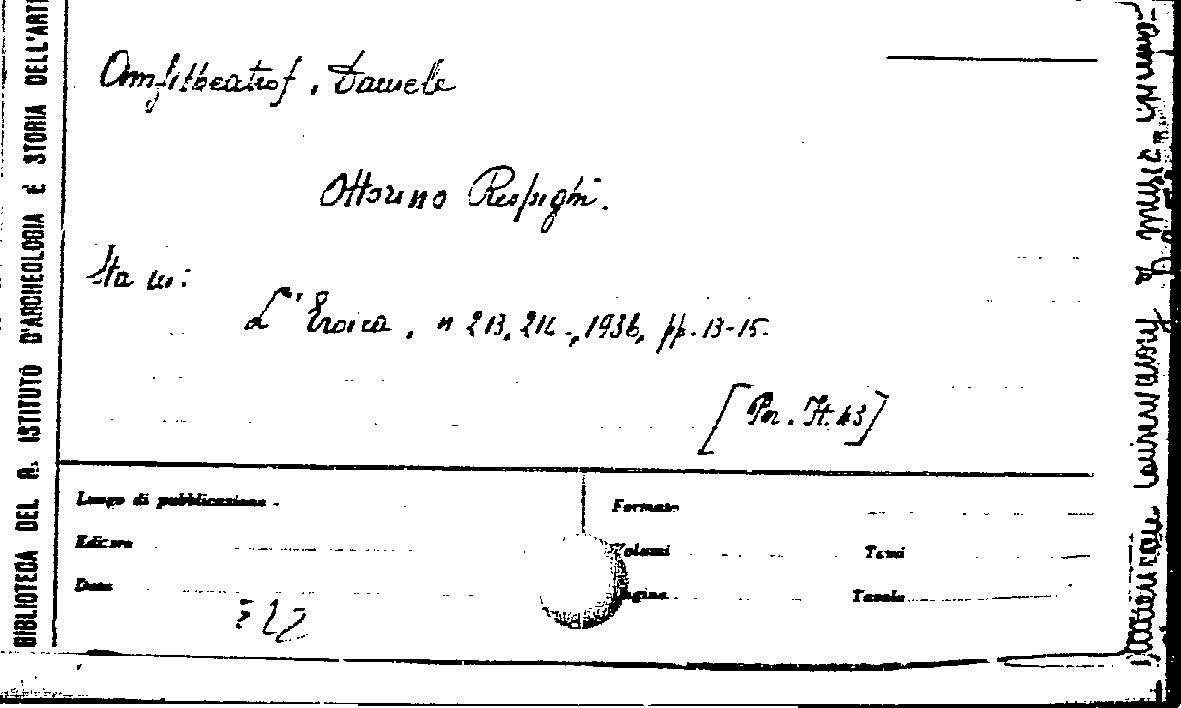 Amfitheatrof, Daniele
Ottorino Respighi.
Sta in:
L'Eroica, n 213, 214, 1936, pp. 13-15.
[Per. It. 43]
Luogo di pubblicazione
Formato
Editore
Volumi
Tomi
Data
Pagine
Tavole
BIBLIOTECA DEL R. ISTITUTO D'ARCHEOLOGIA E STORIA DELL'ARTE